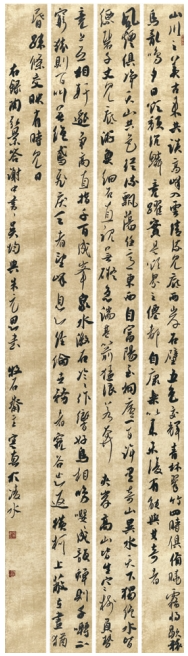 山川之美古来共谈高峰入雲清流見底兩岸石壁五色交輝青林翠竹四時俱備曉霧將歇猿
鳥亂鳴夕日欲頹沉鱗競躍實是欲界之仙都自康樂以来未復有能與其奇者
風煙俱净天山共色從流飄蕩任意東西自富陽至桐廬一百許里奇山異水天下獨绝水皆
縹碧千丈見底游魚細石直視無礙急湍甚箭猛浪若奔夹岸高山皆生寒樹負勢
競上互相軒邈争高直指千百成峰泉水激石泠泠作響好鳥相鳴嚶嚶成韻蟬則千轉不
窮猿則百叫無绝鳶飛戾天者望峰息心經綸世務者窺谷忘返横柯上蔽在晝猶
昏疎條交映有時見日
右録陶弘景答謝中書吴均與朱元思書 牧石齋主